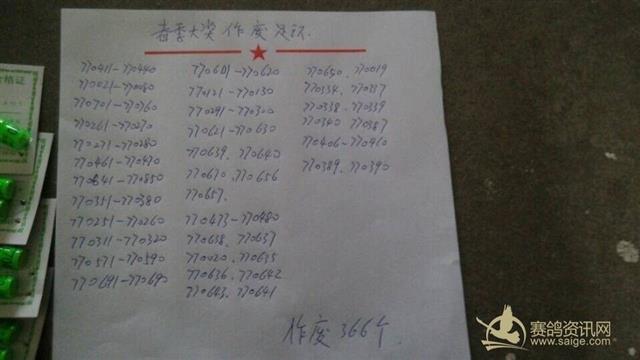 春季大奖作废足环
770411-770440
770021-770080
770701-770760
770261-770270
770271-770280
770461-770470
770841-770850
770351-770380
770251-770260
770311-770320
770571-770590
770691-770690
770601-770620
770121-770130
770291-770300
770621-770630
770639、770640
770670、770656
770657、
770473-770480
770638、770637
770020、770635
770636、770642
770643、770641
770650、770019
770334、770337
770338、770339
770340、770387
770406-770410
770389、770390
作废366个
格证
赛鸽资讯网
www.saige.com